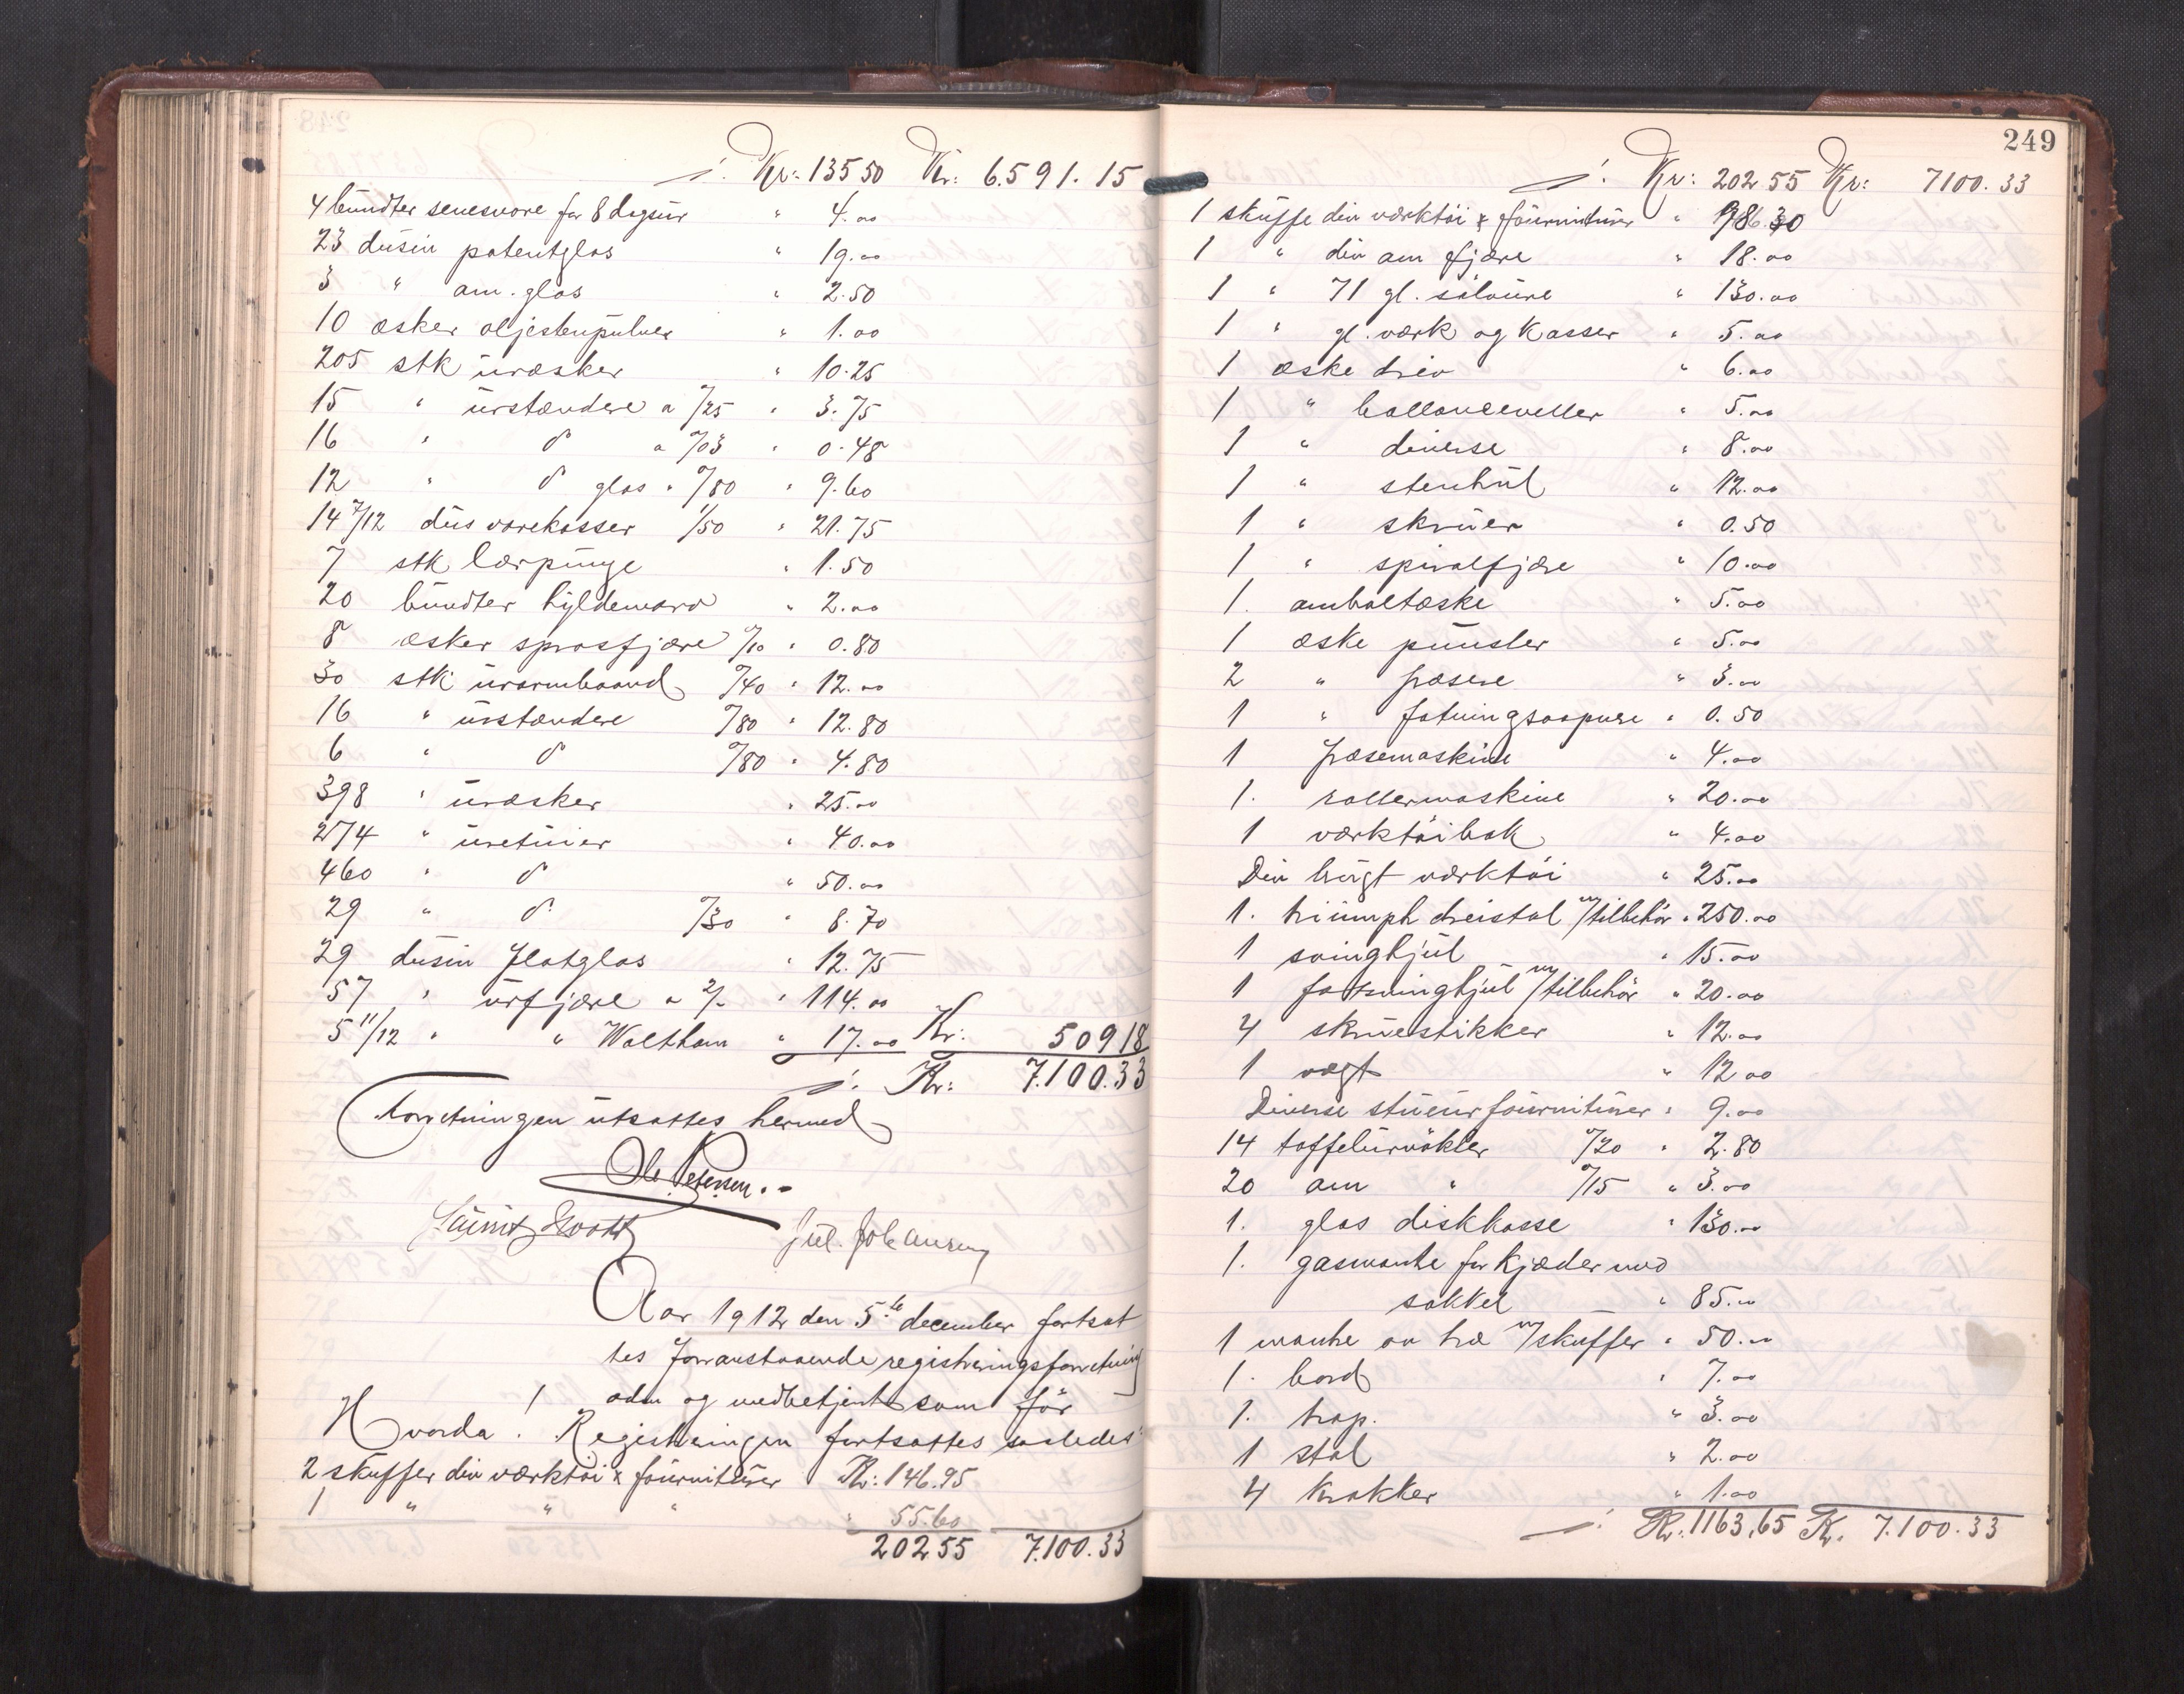 /. Kr: 135 50 Kr: 6.591.15
4 bundter senesnore for 8 dagsur " 4.00
23 dusin patentglas " 19.00
3 " am. glas " 2.50
10 æsker oljestenpulver " 1.00
205 stk uræsker " 10.25
15 " urstændere a 0/25 " 3.75
16 " do a 0/03 " 0.48
12 " do glas " 0/80 " 9.60
14 7/12 dus varekasser 1/50 " 21.75
7 stk lærpunge " 1.50
20 bundter hyldemarv " 2.00
8 æsker sprosfjære 0/10 " 0.80
30 stk urarmbaand 0/40 " 12.00
16 " urstændere 0/80 " 12.80
6 " do 0/80 " 4.80
398 " uræsker " 25.00
274 " uretuier " 40.00
460 " do " 50.00
29 " do 0/30 " 8.70
29 dusin flatglas " 12.75
57 " urfjære a 2/- " 114.00
5 11/12 " " Waltham " 17.00 Kr: 509 18
/. Kr: 7.100.33
Forretningen utsattes hermed
Ole Petersen
Jul. Johansen
Aar 1912 den 5te december fortsat
tes foranstaaende registreringsforretning
adm og medbetjent som før
Hvorda! Registreringen fortsattes saaledes:
2 skuffer div værktøi & fourniturer Kr: 146.95
1 " " " " 55.60
202 55 7.100.33
249
/. Kr: 202 55 Kr: 7100.33
1 skuffe div værktøi & fourniturer " 986.30
1 " div am fjære " 18.00
1 " 71 gl. sølvure " 130.00
1 " gl. værk og kasser " 5.00
1 æske drev " 6.00
1 " ballanceveller " 5.00
1 " diverse " 8.00
1 " stenhul " 12.00
1 " skruer " 0.50
1 " spiralfjære " 10.00
1. amboltæske " 5.00
1 æske punsler " 5.00
2 " fræsere " 3.00
1 " fatningsaapnere " 0.50
1 fræsemaskine " 4.00
1. rollermaskine " 20.00
1 værktøibok " 4.00
Div brugt værktøi " 25.00
1. triumph dreistol m/tilbehør " 250.00
1 svinghjul " 15.00
1 forsvinghjul m/tilbehør " 20.00
4 skruestikker " 12.00
1 vægt " 12 00
Diverse stueurfourniturer " 9.00
14 taffelurnøkler 0/20 " 2.80
20 am " 0/15 " 3.00
1. glas diskkasse " 130.00
1. glasmontre for kjæder med
sokkel " 85.00
1 montre av træ m/skuffer " 50.00
1. bord " 7.00
1. trap. " 3.00
1 stol " 2.00
4 krakker " 1.00
/. Kr. 1163,65 Kr. 7.100.33